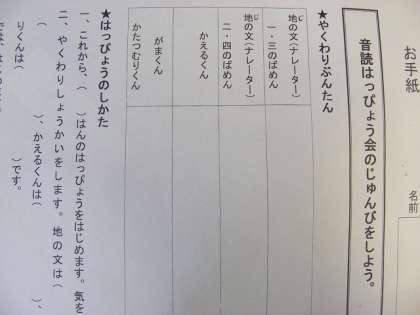 お手紙
名前
音読はっぴょう会のじゅんびをしよう。
★やくわりぶんたん
地の文(ナレーター)
じ
一・三のばめん
地の文(ナレーター)
じ
二・四のばめん
かえるくん
がまくん
かたつむりくん
★はっぴょうのしかた
一、これから、( )はんのはっぴょうをはじめます。気を
二、やくわりしょうかいをします。地の文は(
( )、かえるくんは( )、
りくんは( )です。